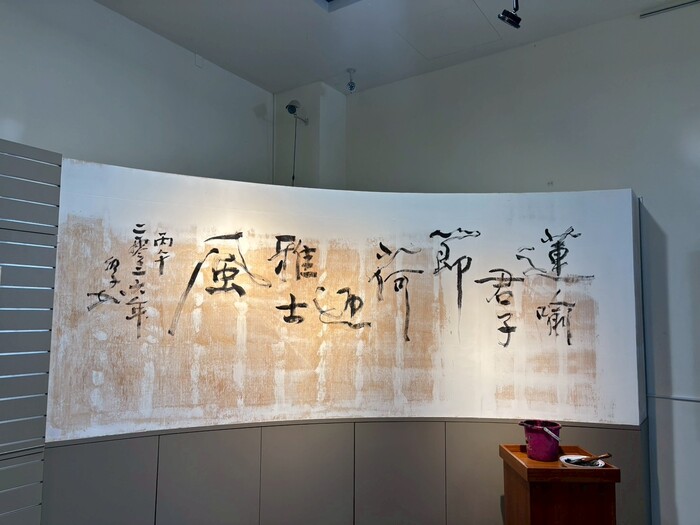 蓮喻
君子
節
荷
迎
雅士
風
丙午
二零二六年